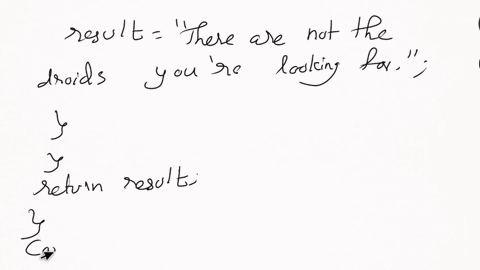 result = "There are not the
droids you're looking for.";
}
}
return result;
}
Co